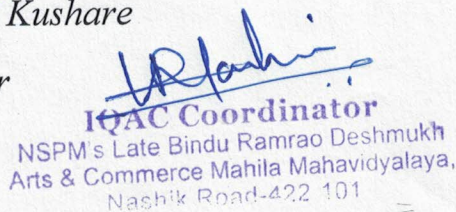 Kushare
r
IQAC Coordinator
NSPM's Late Bindu Ramrao Deshmukh
Arts & Commerce Mahila Mahavidyalaya,
Nashik Road-422 101